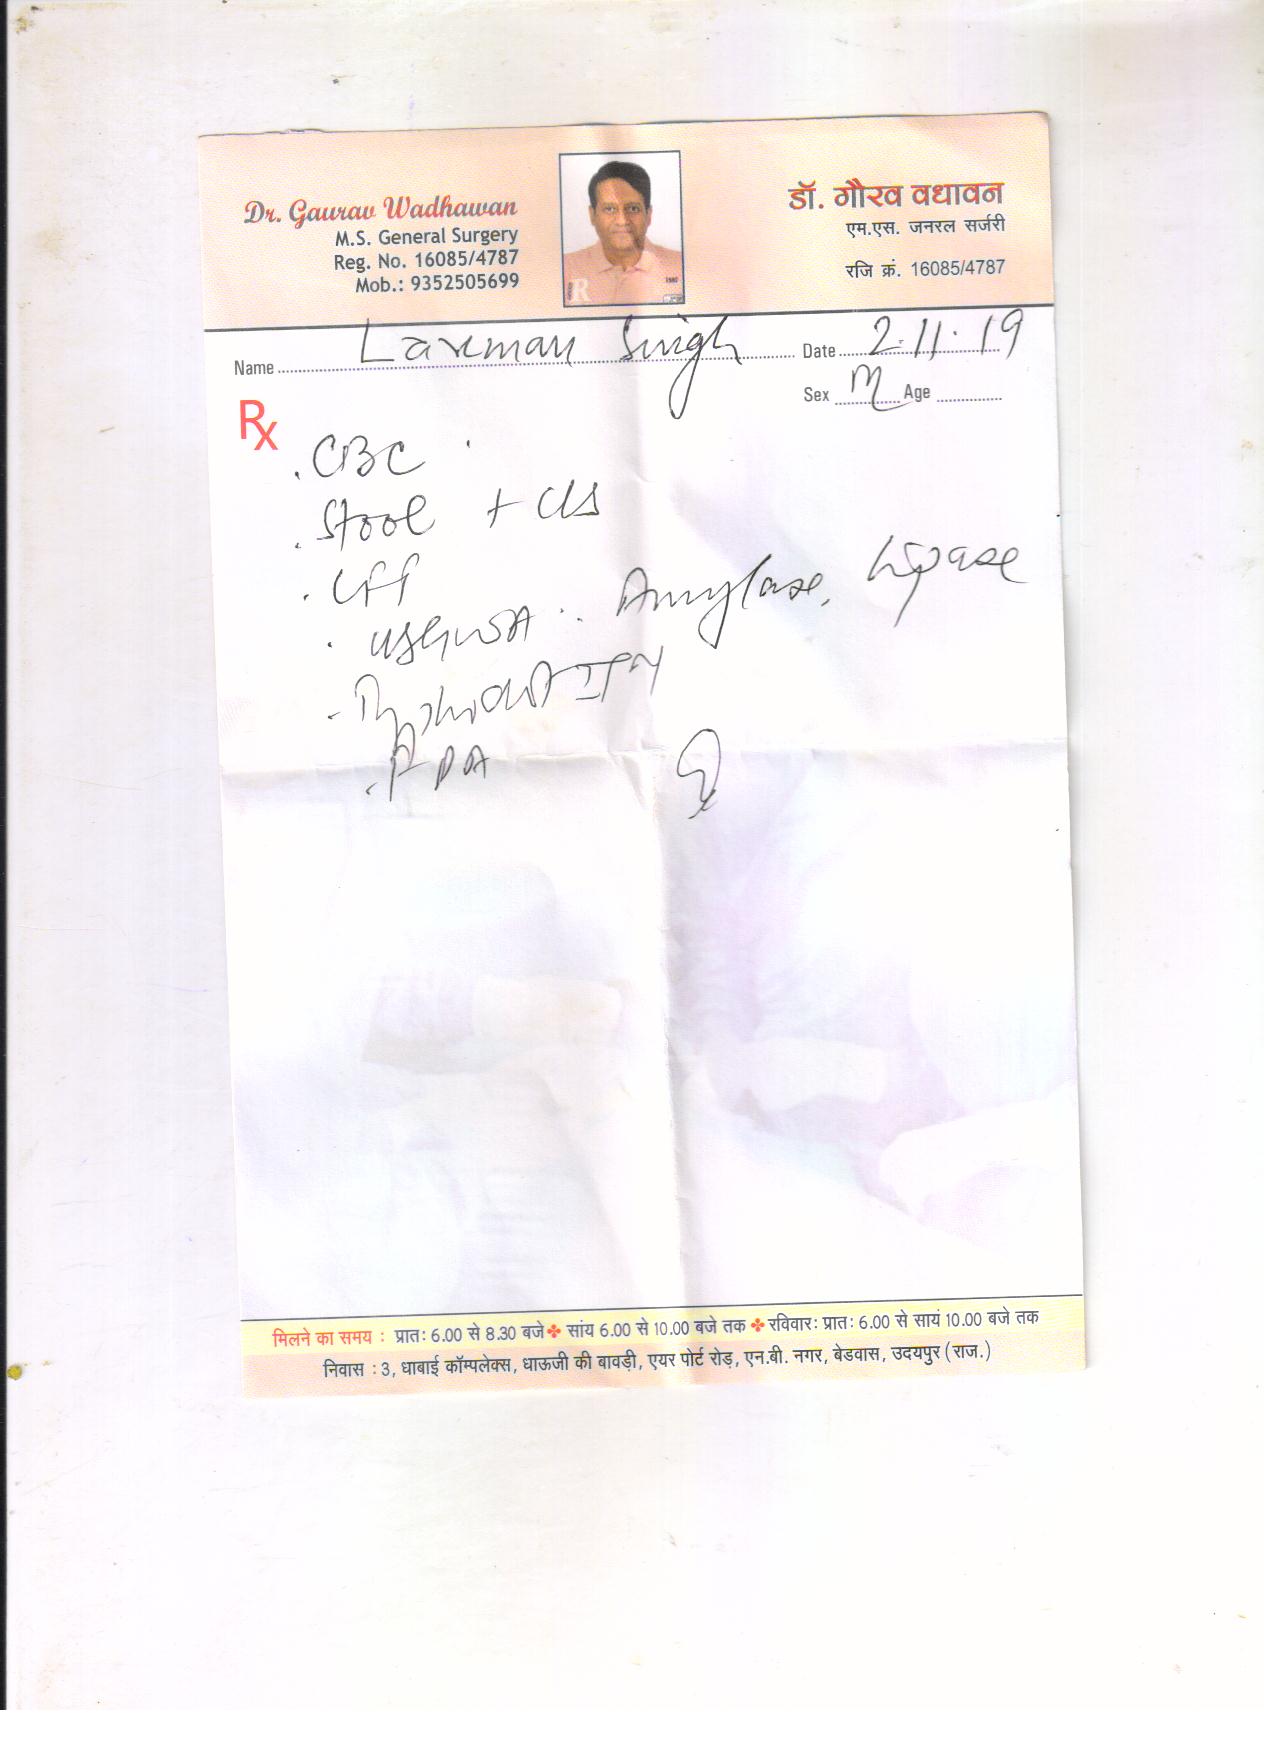 Dr. Gaurav Wadhawan
M.S. General Surgery
Reg. No. 16085/4787
Mob.: 9352505699
डॉ. गौरव वधावन
एम.एस. जनरल सर्जरी
रजि क्रं. 16085/4787
Name Laxman Singh Date 2.11.19
Sex M Age
Rx
. CBC
. Stool + C/S
. LFT
Amylase, Lipase
मिलने का समय : प्रातः 6.00 से 8.30 बजे ✤ सांय 6.00 से 10.00 बजे तक ✤ रविवारः प्रातः 6.00 से सायं 10.00 बजे तक
निवास : 3, धाबाई कॉम्पलेक्स, धाऊजी की बावड़ी, एयर पोर्ट रोड़, एन.बी. नगर, बेडवास, उदयपुर (राज.)